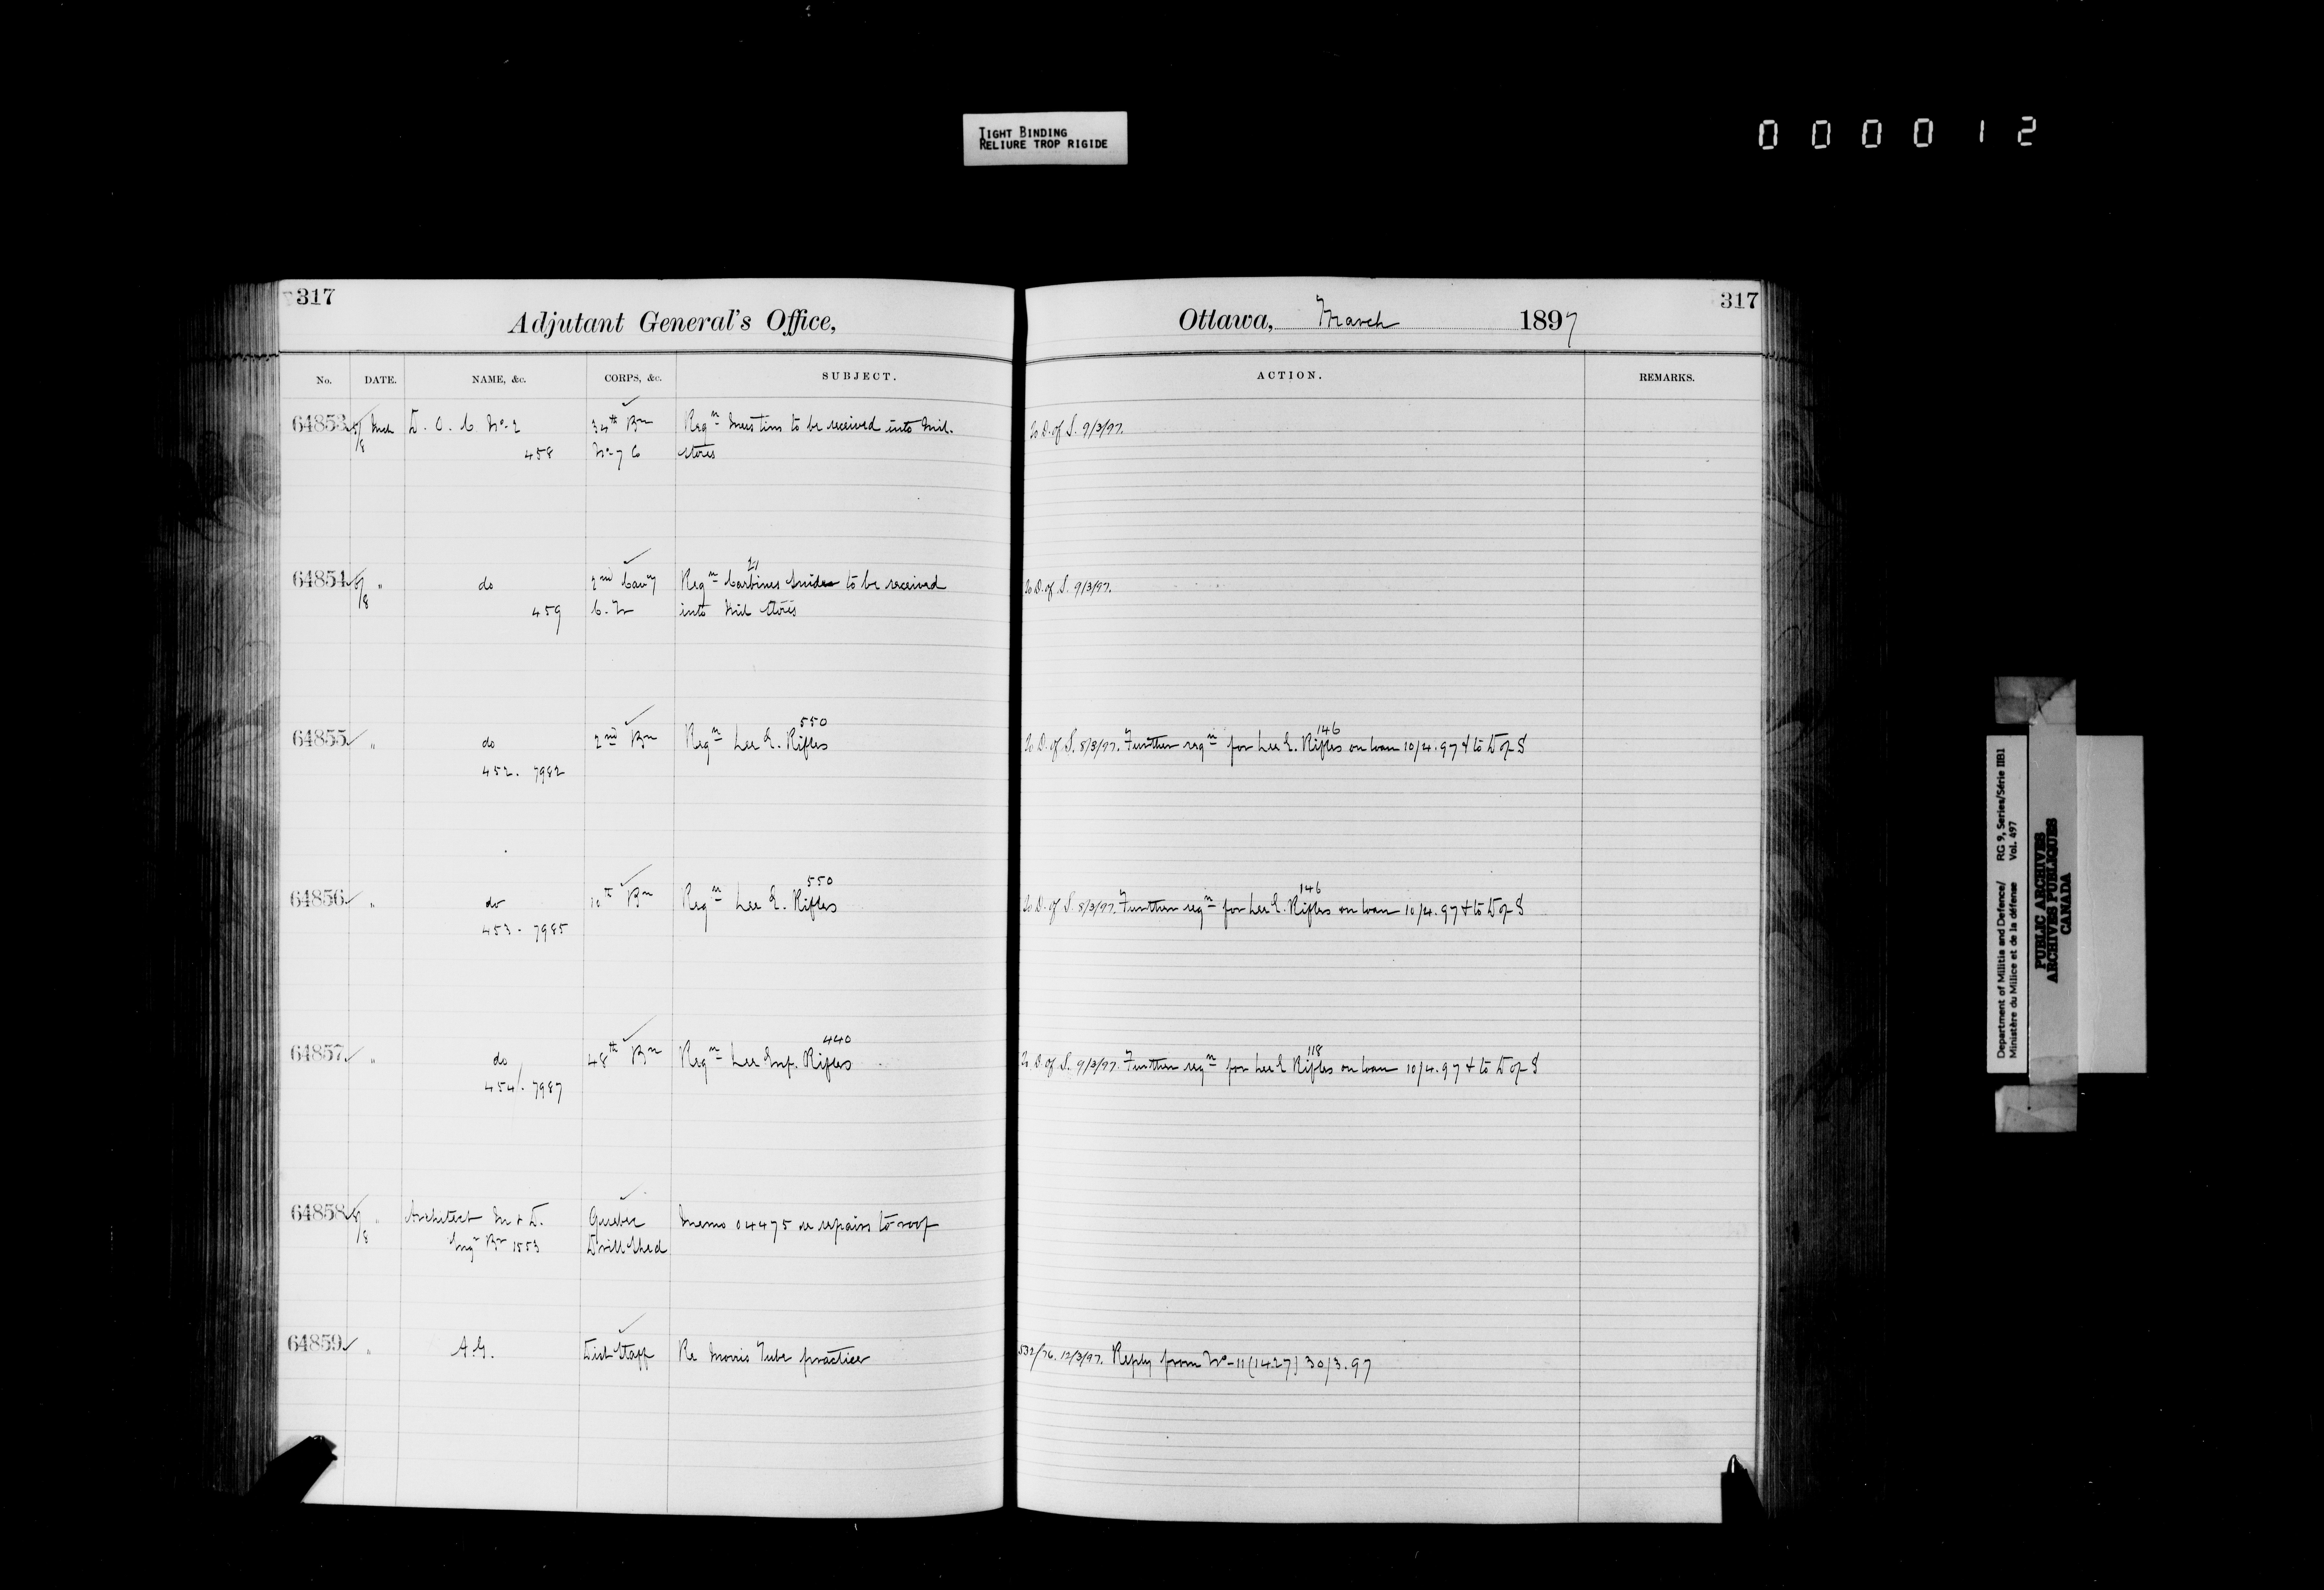 TIGHT BINDING
RELIURE TROP RIGIDE
000012
317
Adjutant General's Office,
Ottawa, March 1897
317
No. DATE. NAME, &c. CORPS, &c. SUBJECT. ACTION. REMARKS.
64853 5/8 Mch D. O. C. No. 2 34th Bn Reqn Mess tins to be received into Mil. To D. of S. 9/3/97.
458 No. 7 Co stores
64854 6/8 " do 2nd Cavy Reqn 21 Carbines Snider to be received To D. of S. 9/3/97.
459 into Mil stores
64855 " do 2nd Bn Reqn 550 Lee E. Rifles To D. of S. 8/3/97. Further reqn for 146 Lee E. Rifles on loan 10/4.97 & to D of S
452. 7982
64856 " do 10th Bn Reqn 550 Lee E. Rifles To D. of S. 8/3/97. Further reqn for 146 Lee E. Rifles on loan 10/4.97 & to D of S
453. 7985
64857 " do 48th Bn Reqn 440 Lee Enf. Rifles To D. of S. 9/3/97. Further reqn for 118 Lee E Rifles on loan 10/4.97 & to D of S
454. 7987
64858 8/8 " Architect M & D. Quebec Memo 04475 re repairs to roof
Engr Br 1553 Drill Shed
64859 " A.G. Dist Staff Re Morris Tube practice 532/76. 12/3/97. Reply from No-11 (1427) 30/3.97
Department of Militia and Defence/ RG 9, Series/Série IIB1
Ministère du Milice et de la défense Vol. 497
PUBLIC ARCHIVES
ARCHIVES PUBLIQUES
CANADA